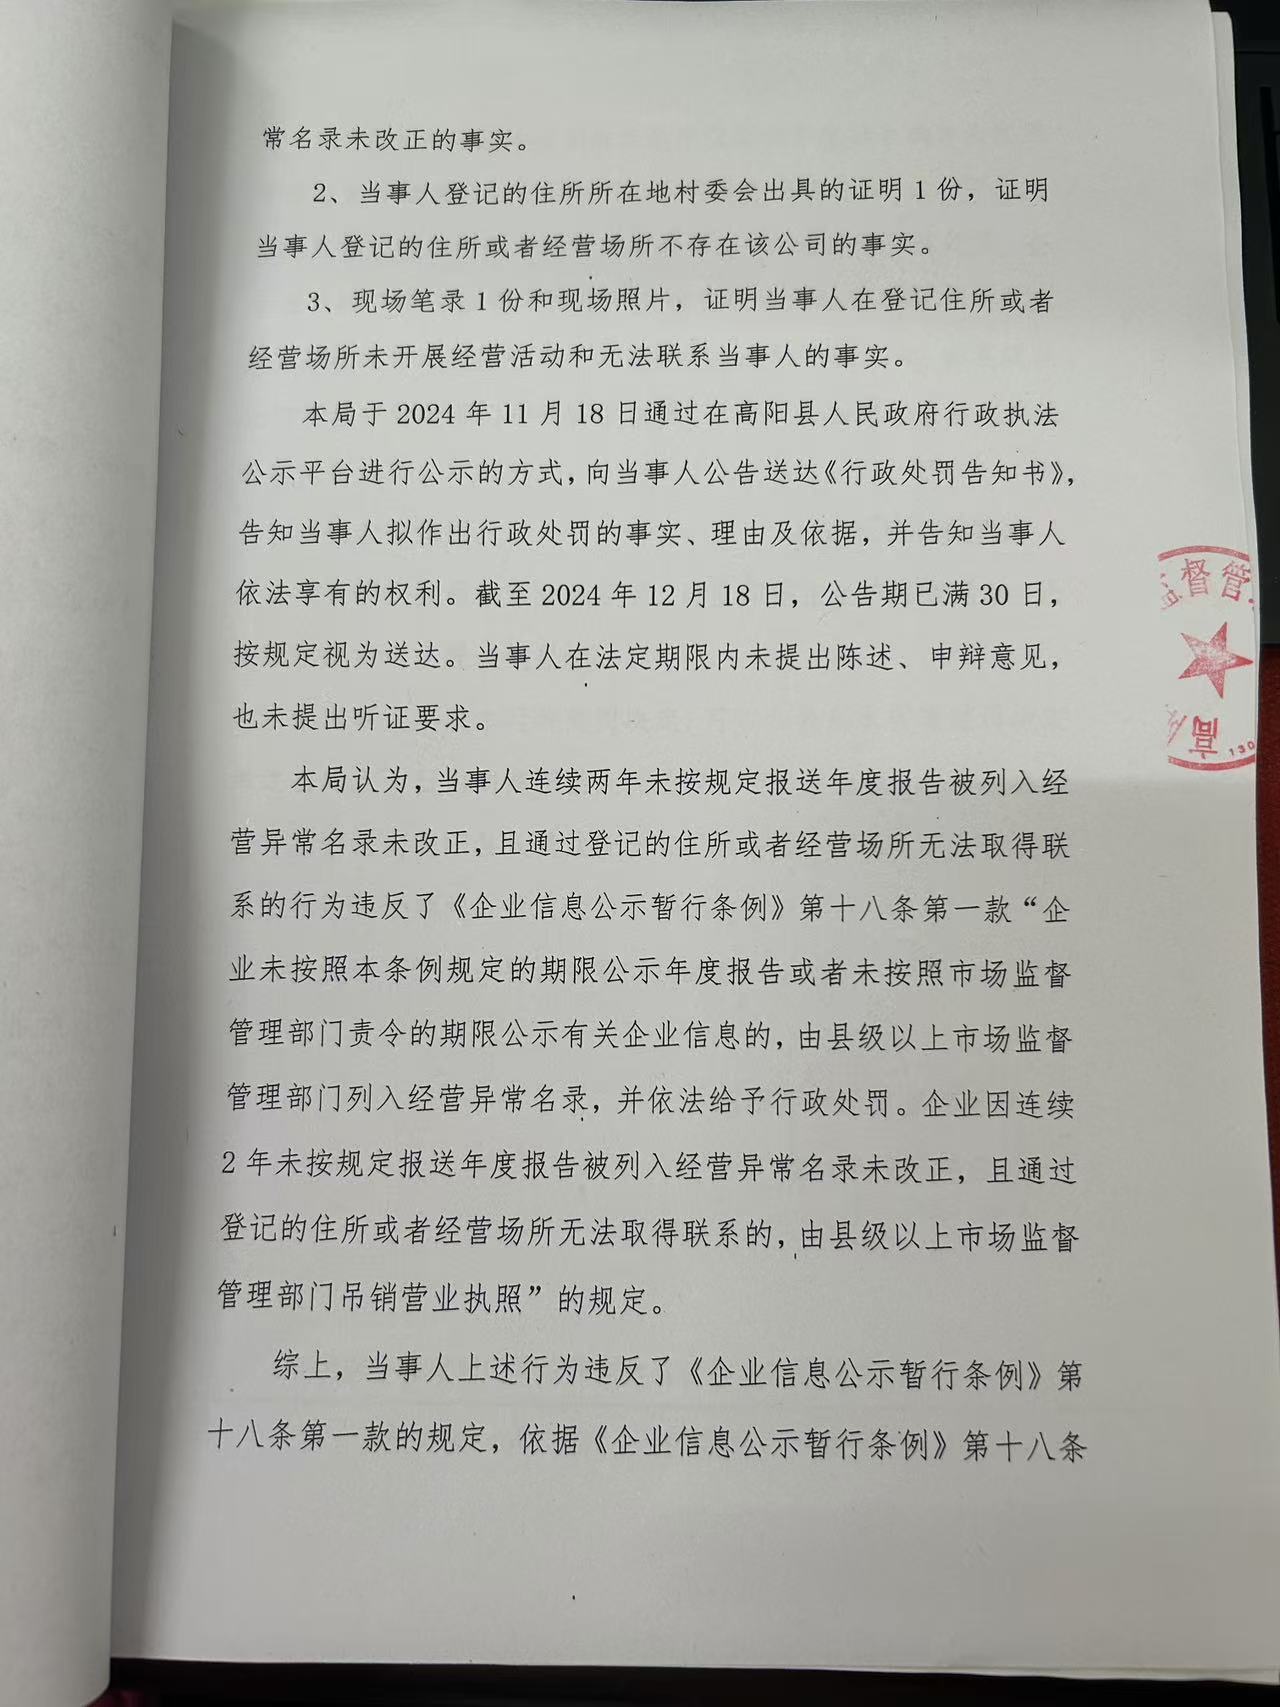 常名录未改正的事实。
2、当事人登记的住所所在地村委会出具的证明1份，证明
当事人登记的住所或者经营场所不存在该公司的事实。
3、现场笔录1份和现场照片，证明当事人在登记住所或者
经营场所未开展经营活动和无法联系当事人的事实。
本局于2024年11月18日通过在高阳县人民政府行政执法
公示平台进行公示的方式，向当事人公告送达《行政处罚告知书》，
告知当事人拟作出行政处罚的事实、理由及依据，并告知当事人
依法享有的权利。截至2024年12月18日，公告期已满30日，
按规定视为送达。当事人在法定期限内未提出陈述、申辩意见，
也未提出听证要求。
本局认为，当事人连续两年未按规定报送年度报告被列入经
营异常名录未改正，且通过登记的住所或者经营场所无法取得联
系的行为违反了《企业信息公示暂行条例》第十八条第一款“企
业未按照本条例规定的期限公示年度报告或者未按照市场监督
管理部门责令的期限公示有关企业信息的，由县级以上市场监督
管理部门列入经营异常名录，并依法给予行政处罚。企业因连续
2年未按规定报送年度报告被列入经营异常名录未改正，且通过
登记的住所或者经营场所无法取得联系的，由县级以上市场监督
管理部门吊销营业执照”的规定。
综上，当事人上述行为违反了《企业信息公示暂行条例》第
十八条第一款的规定，依据《企业信息公示暂行条例》第十八条
监督管
高
130